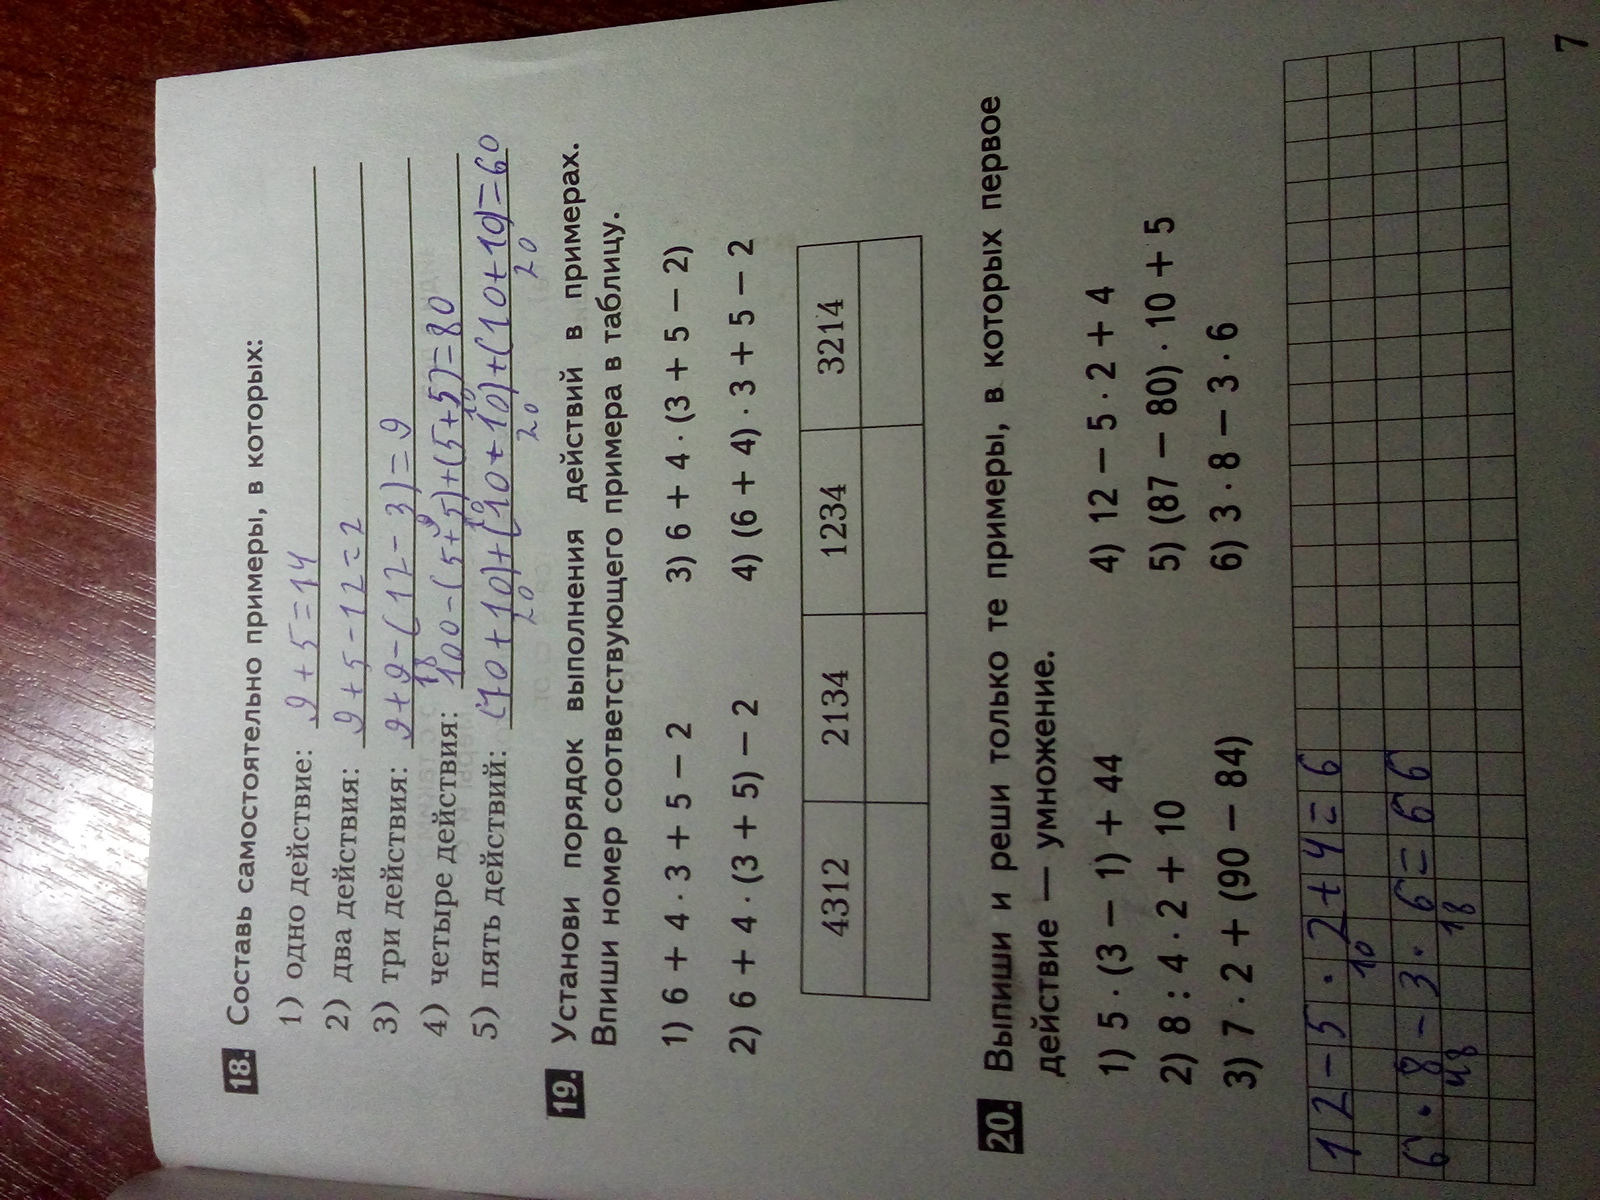 18. Составь самостоятельно примеры, в которых:
1) одно действие: 9+5=14
2) два действия: 9+5-12=2
3) три действия: 9+9-(12-3)=9
18 9
4) четыре действия: 100-(5+5)+(5+5)=80
10 10
5) пять действий: (10+10)+(10+10)+(10+10)=60
20 20 20
19. Установи порядок выполнения действий в примерах.
Впиши номер соответствующего примера в таблицу.
1) 6 + 4 · 3 + 5 − 2 3) 6 + 4 · (3 + 5 − 2)
2) 6 + 4 · (3 + 5) − 2 4) (6 + 4) · 3 + 5 − 2
4312 2134 1234 3214
20. Выпиши и реши только те примеры, в которых первое
действие — умножение.
1) 5 · (3 − 1) + 44 4) 12 − 5 · 2 + 4
2) 8 : 4 · 2 + 10 5) (87 − 80) · 10 + 5
3) 7 · 2 + (90 − 84) 6) 3 · 8 − 3 · 6
12-5·2+4=6
10
6·8-3·6=66
48 18
7